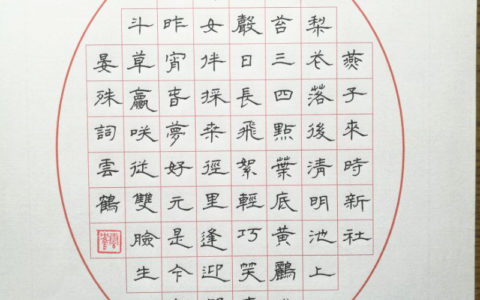 燕子來時新社
梨芲落後清明池上
苔三四點葉底黃鸝
聲日長飛絮輕巧笑
女伴採桒徑里逢迎
昨宵旾夢好元是今
斗草贏咲從雙臉生
晏殊詞雲鶴